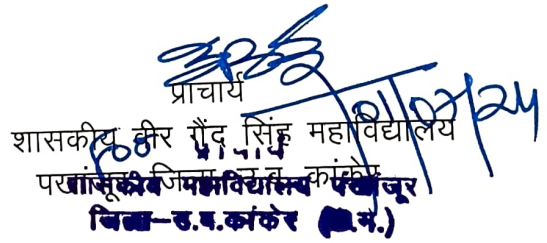 प्राचार्य
शासकीय वीर गैंद सिंह महाविद्यालय
पखांजूर जिला उ.ब. कांकेर
प्राचार्य
शासकीय महाविद्यालय पखांजूर
जिला-उ.ब.कांकेर